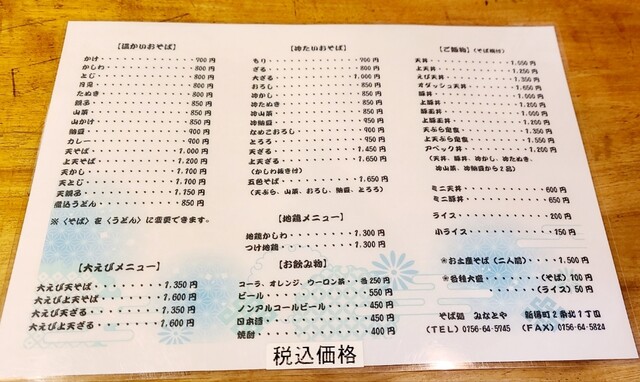 【温かいおそば】
かけ・・・・・・・・・700円
かしわ・・・・・・・・800円
とじ・・・・・・・・・800円
月見・・・・・・・・・800円
たぬき・・・・・・・・800円
親子・・・・・・・・・850円
山菜・・・・・・・・・850円
山かけ・・・・・・・・850円
納豆・・・・・・・・・900円
カレー・・・・・・・・900円
天そば・・・・・・・1.000円
上天そば・・・・・・1.200円
天かし・・・・・・・1.100円
天とじ・・・・・・・1.100円
天親子・・・・・・・1.150円
煮込うどん・・・・・・850円
※〈そば〉を〈うどん〉に変更できます。
【大えびメニュー】
大えび天そば・・・・・1.350円
大えび上天そば・・・・1.600円
大えび天ざる・・・・・1.350円
大えび上天ざる・・・・1.600円
【冷たいおそば】
もり・・・・・・・・・700円
ざる・・・・・・・・・800円
大ざる・・・・・・・1.000円
おろし・・・・・・・・850円
冷かし・・・・・・・・850円
冷たぬき・・・・・・・850円
冷山菜・・・・・・・・850円
冷納豆・・・・・・・・900円
なめこおろし・・・・・900円
とろろ・・・・・・・・950円
天ざる・・・・・・・1.450円
上天ざる・・・・・・1.650円
(かしわ抜き付)
五色そば・・・・・・1.650円
(天ぷら、山菜、おろし、納豆、とろろ)
【地鶏メニュー】
地鶏かしわ・・・・・1.300円
つけ地鶏・・・・・・1.300円
【お飲み物】
コーラ、オレンジ、ウーロン茶・・各250円
ビール・・・・・・・・550円
ノンアルコールビール・・450円
日本酒・・・・・・・・450円
焼酎・・・・・・・・・400円
税込価格
【ご飯物】(そば椀付)
天丼・・・・・・・・1.050円
上天丼・・・・・・・1.250円
えび天丼・・・・・・1.350円
オダッシュ天丼・・・1.650円
豚丼・・・・・・・・1.000円
上豚丼・・・・・・・1.200円
豚玉丼・・・・・・・1.000円
上豚玉丼・・・・・・1.200円
天ぷら定食・・・・・1.350円
上天ぷら定食・・・・1.550円
アベック丼・・・・・1.200円
(天丼、豚丼、冷かし、冷たぬき、
冷山菜、冷納豆から2品)
ミニ天丼・・・・・・・600円
ミニ豚丼・・・・・・・650円
ライス・・・・・・・・200円
小ライス・・・・・・・150円
※お土産そば(二人前)・・1.500円
※各種大盛・・・・(そば)100円
(ライス)50円
そば処 みなとや 新得町2条北1丁目
(TEL)0156-64-5745 (FAX)0156-64-5824